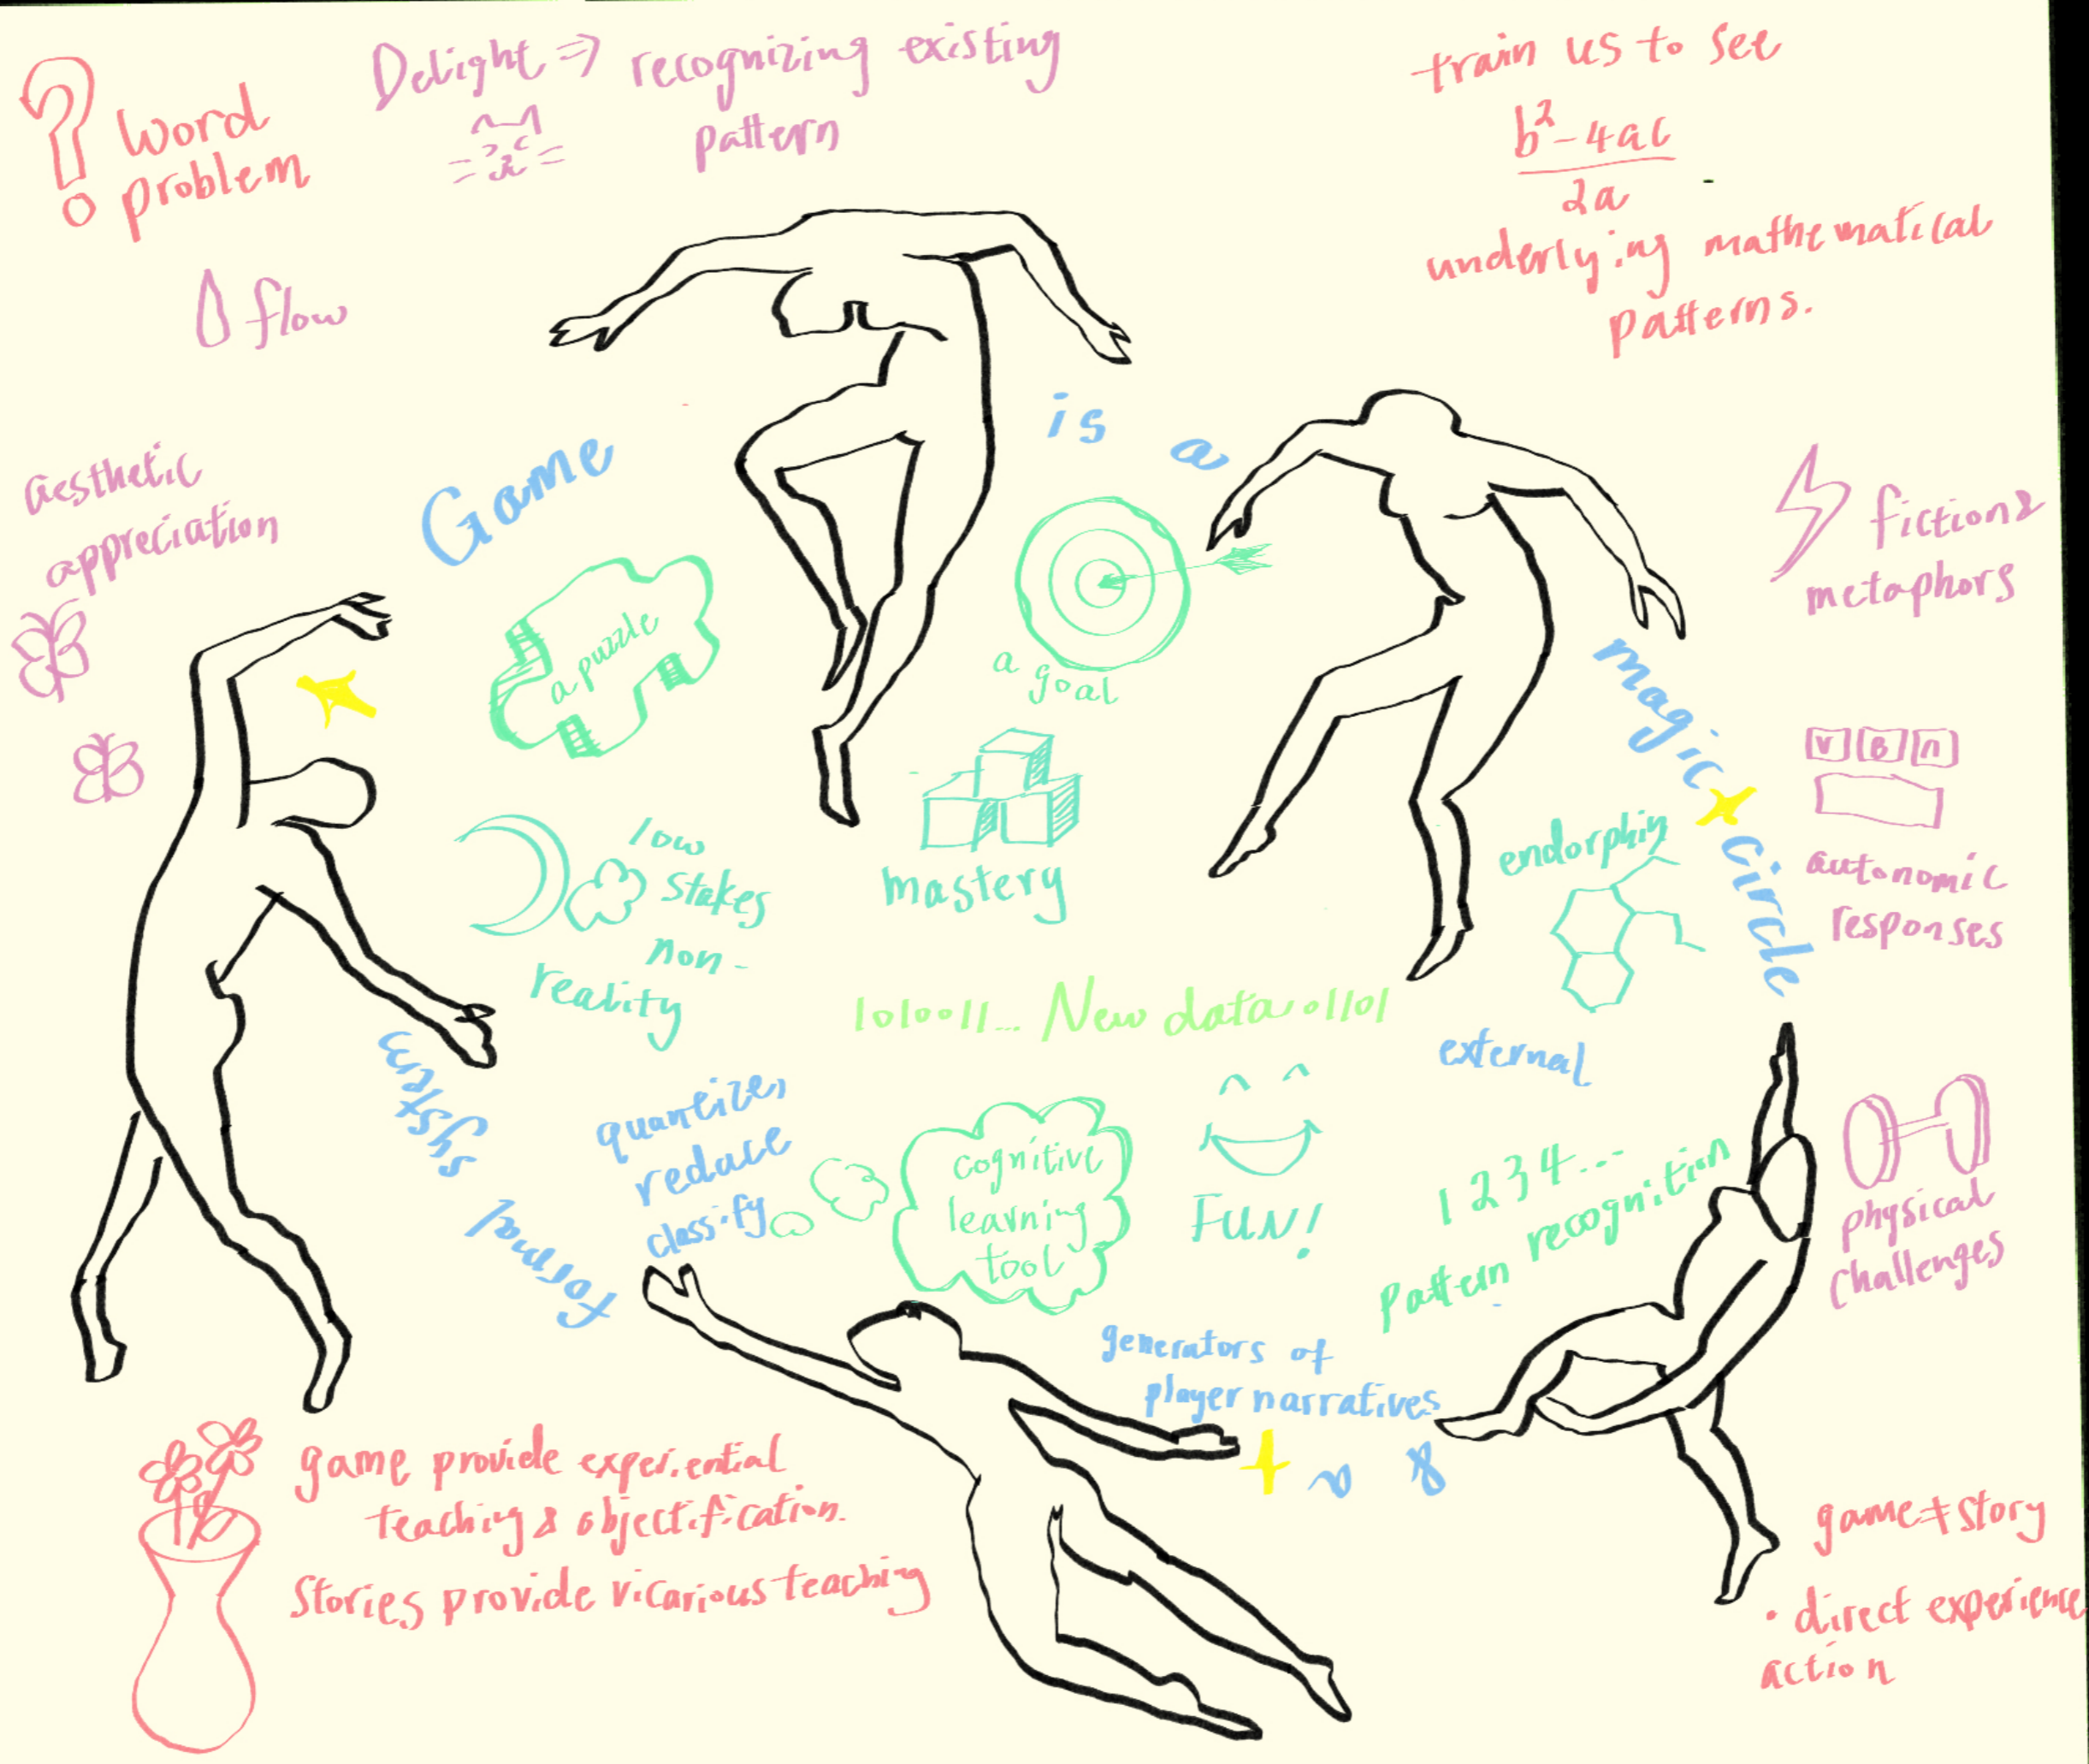 Delight ⇒ recognizing existing
pattern
Word
problem
flow
train us to see
b²-4ac
2a
underlying mathematical
patterns.
aesthetic
appreciation
Game
is a
magic circle
&
formal
system
fictions
metaphors
a puzzle
a goal
V B n
autonomic
responses
low
stakes
non-
reality
mastery
endorphin
1010011... New data 01101
external
quantize,
reduce
classify
cognitive
learning
tool
FUN!
1 2 3 4 ...
pattern recognition
physical
challenges
generators of
player narratives
game provide experiential
teaching & objectification.
Stories provide vicarious teaching
game ≠ story
• direct experience
action